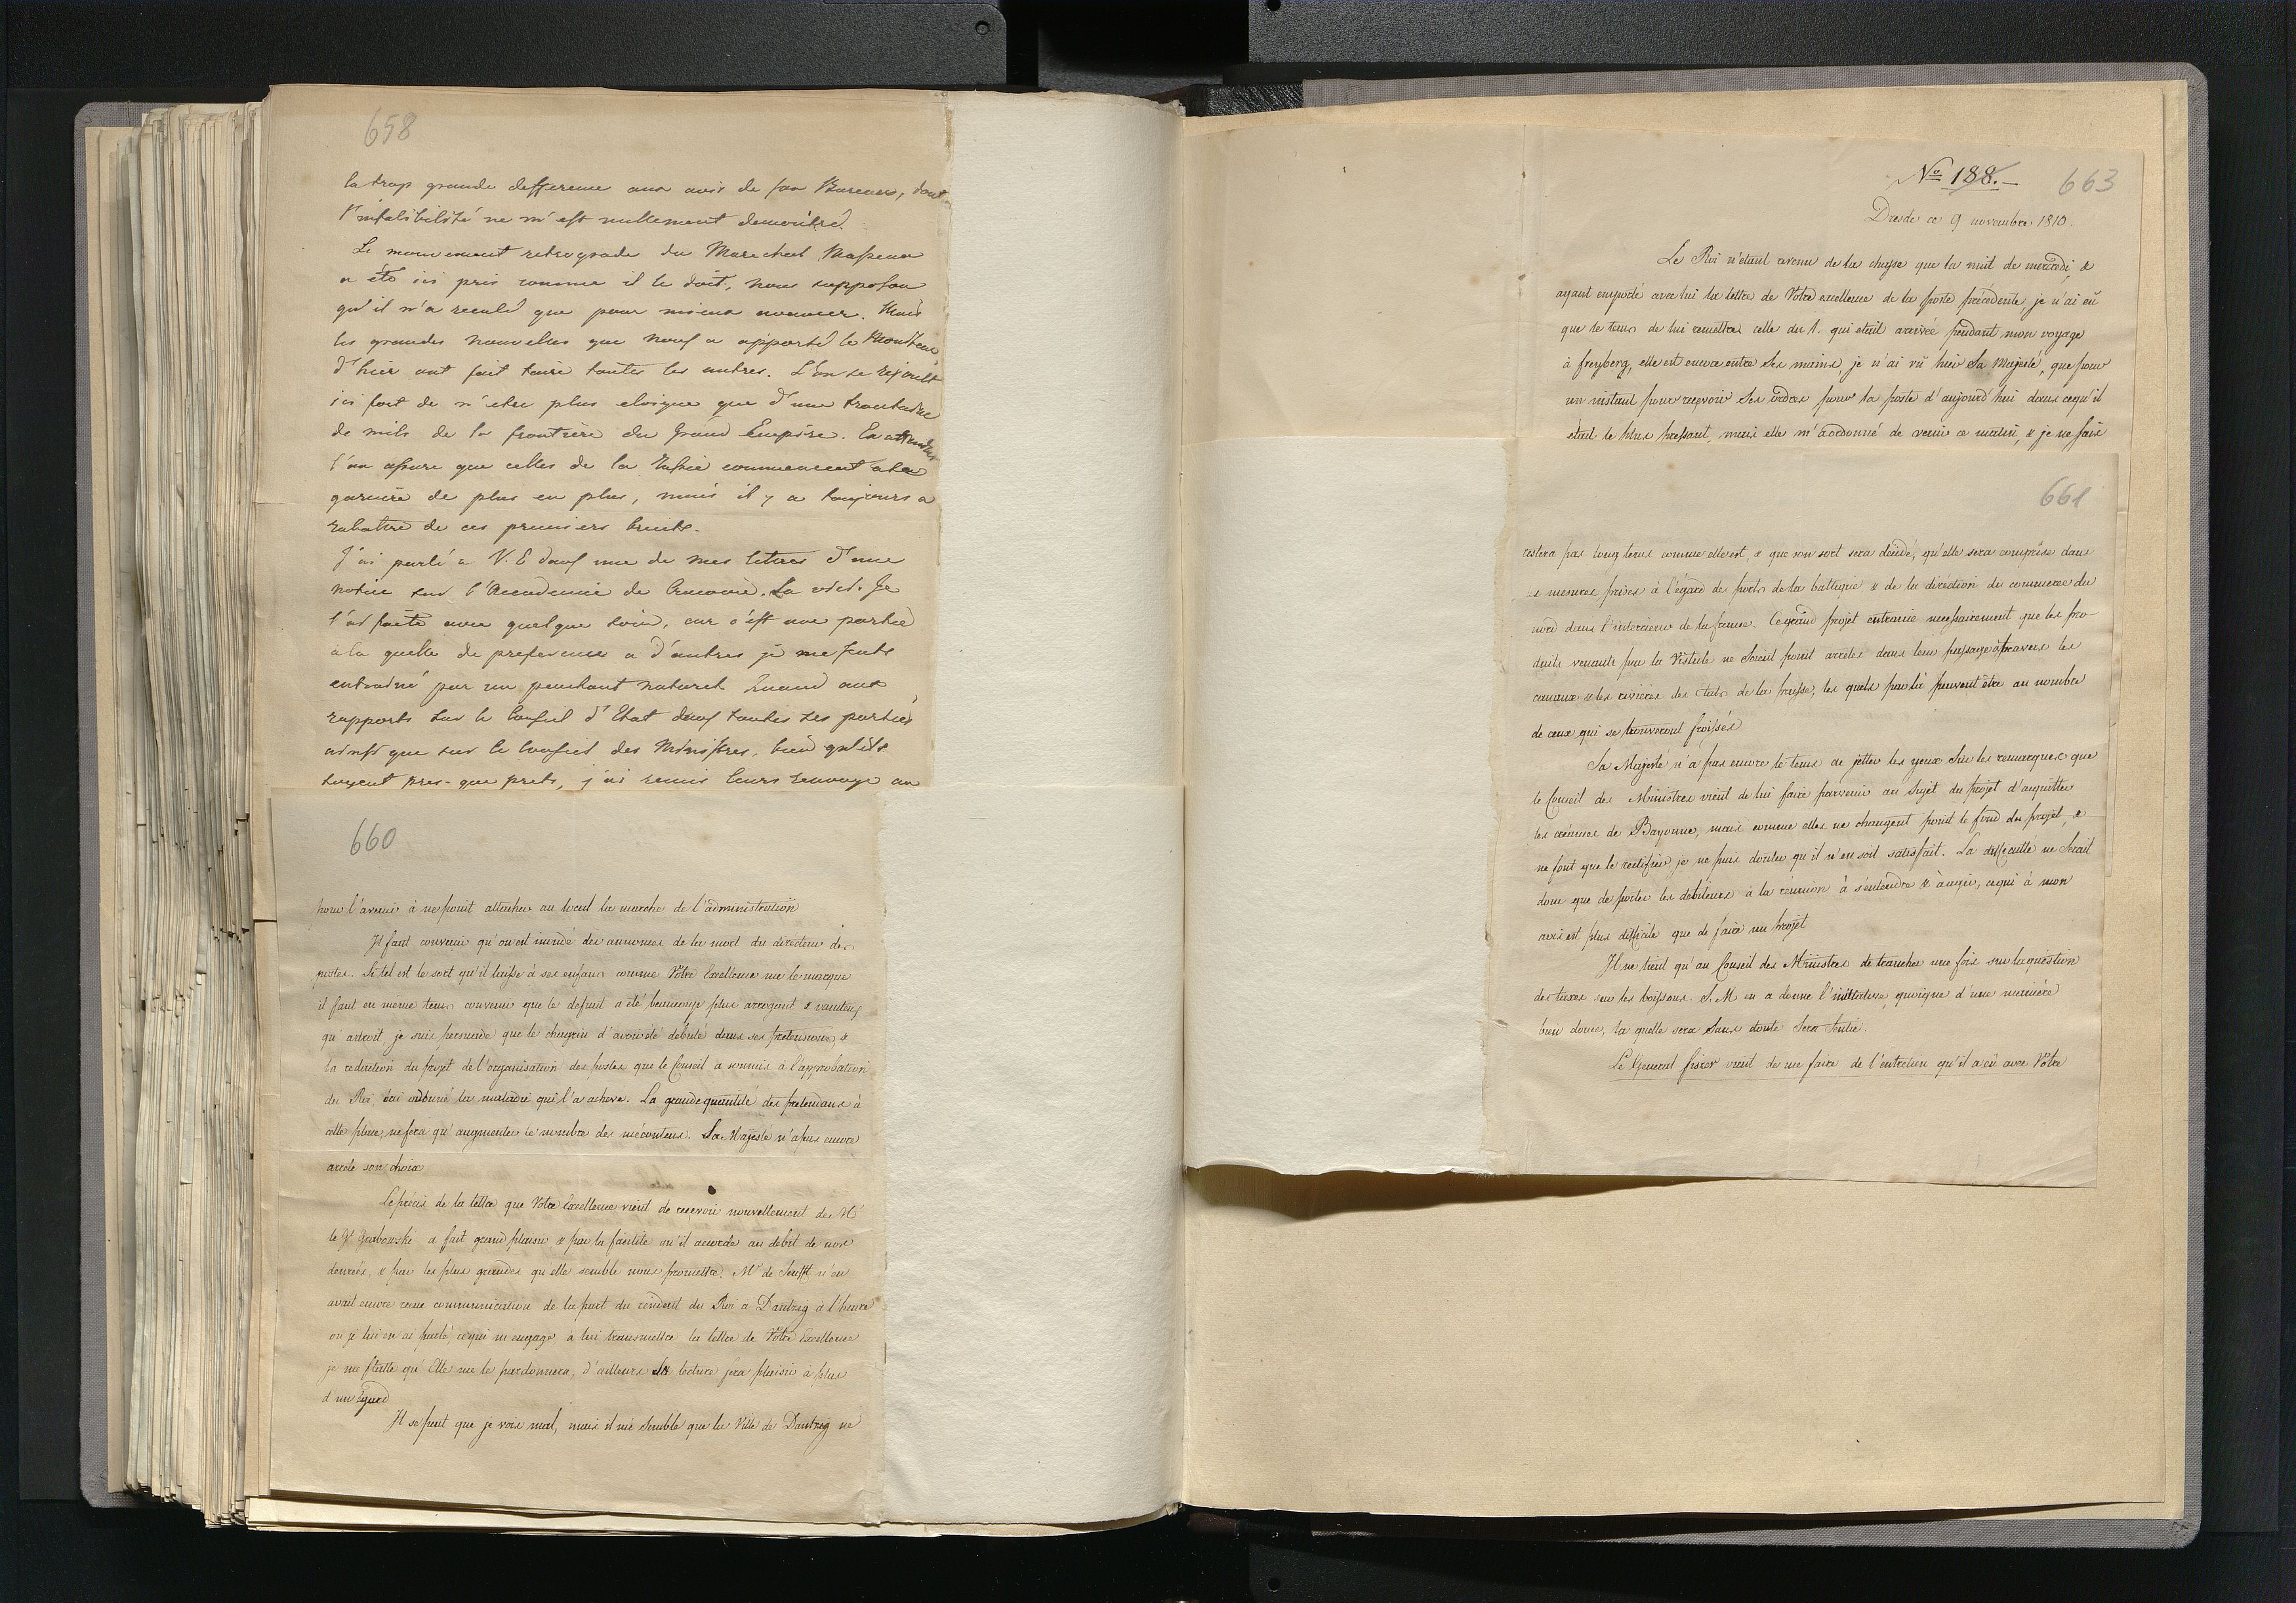 658
la trop grande defference aux avis de son Bureau, dont
l'infalibilité ne m'est nullement demontré.
Le mouvement retrograde du Marechal Massena
a été ici pris comme il le doit, nous supposons
qu'il n'a reculé que pour mieux avancer. Mais
les grandes nouvelles que nous a apporté le Moniteur
d'hier ont fait taire toutes les autres. L'on se rejouit
ici fort de n'etre plus eloigné que d'une trentaine
de mils de la frontière du Grand Empire. En attendant
l'on assure que celles de la Russie commencent a se
garnire de plus en plus, mais il y a toujours a
rabattre de ces premiers bruits.
J'ai parlé a V. E dans une de mes lettres d'une
notice sur l'Accademie de Cracovie. La voici. Je
l'ai faite avec quelque soin, car c'est une partie
à la quelle de preference a d'autres je me sens
entrainé par un penchant naturel. Quand aux
rapports sur le Conseil d'Etat dans toutes ses parties
ainsi que sur le Conseil des Ministres, bien qu'ils
soyent pres-que prets, j'ai remis leurs renvoye au
660
pour l'avenir à ne point attacher au local la marche de l'administration
Il faut convenir qu'on est inondé des annonces de la mort du directeur des
postes. Si tel est le sort qu'il laisse à ses enfans comme Votre Excellence me le marque
il faut en meme tems convenir que le defunt a été beaucoup plus arrogant & vaniteux
qu'adroit, je suis persuadé que le chagrin d'avoir été débouté dans ses pretensions, &
la redaction du projet de l'organisation des postes que le Conseil a soumis à l'approbation
du Roi la maladie qui l'a achevé. La grande quantité des pretendans à
cette place, ne fera qu'augmenter le nombre des mécontens. Sa Majesté n'a pas encore
arreté son choix
Le précis de la lettre que Votre Excellence vient de recevoir nouvellement de Mr
le Gl Grabowski a fait grand plaisir & par la facilité qu'il accorde au debit de nos
denrées, & par les plus grandes qu'elle semble nous promettre. Mr de Senfft n'en
avait encore reçue communication de la part du résident du Roi a Dantzig a l'heure
ou je lui en ai parlé, ce qui m'engage a lui transmettre la lettre de Votre Excellence
je me flatte qu'Elle me le pardonnera, d'ailleurs sa lecture fera plaisir à plus
d'un égard
Il se peut que je vois mal, mais il me semble que la Ville de Dantzig ne
No 188.
663
Dresde ce 9 novembre 1810.
Le Roi n'etant revenu de la chasse que la nuit de mercredi, &
ayant emporté avec lui la lettre de Votre excellence de la poste précédente, je n'ai eû
que le tems de lui remettre celle du 1. qui etait arrivée pendant mon voyage
à freyberg, elle est encore entre Ses mains, je n'ai vû hier Sa Majesté, que pour
un instant pour recevoir Ses ordres pour la poste d'aujourd'hui dans ce qu'il
etait le plus pressant, mais elle m'a ordonné de venir ce matin, & je ne fais
661
restera pas long tems comme elle est, & que son sort sera décidé, qu'elle sera comprise dans
les mesures prises à l'égard des ports de la baltique & de la direction du commerce du
nord dans l'interieure de la france. Ce grand projet entraine necessairement que les pro
duits venants par la Vistule ne Soient point arretés dans leur passage à travers les
canaux & les rivières des Etats de la prusse, les quels par là peuvent être au nombre
de ceux qui se trouveront froissés
Sa Majesté n'a pas encore le tems de jetter les yeux Sur les remarques que
le Conseil des Ministres vient de lui faire parvenir au Sujet du projet d'acquitter
les créances de Bayonne, mais comme elles ne changent point le fond du projet, &
ne font que le rectifier, je ne puis douter qu'il n'en soit satisfait. La difficulté ne Serait
donc que de porter les debiteurs à la réunion à s'entendre & à agir, ce qui à mon
avis est plus difficile que de faire un projet
Il ne tient qu'au Conseil des Ministres de trancher une fois sur la question
des taxes sur les boissons. S. M en a donné l'initiative, quoique d'une manière
bien douce, la quelle sera Sans doute Sera Sentie.
Le General fiszer vient de me faire de l'entretien qu'il a eû avec Votre